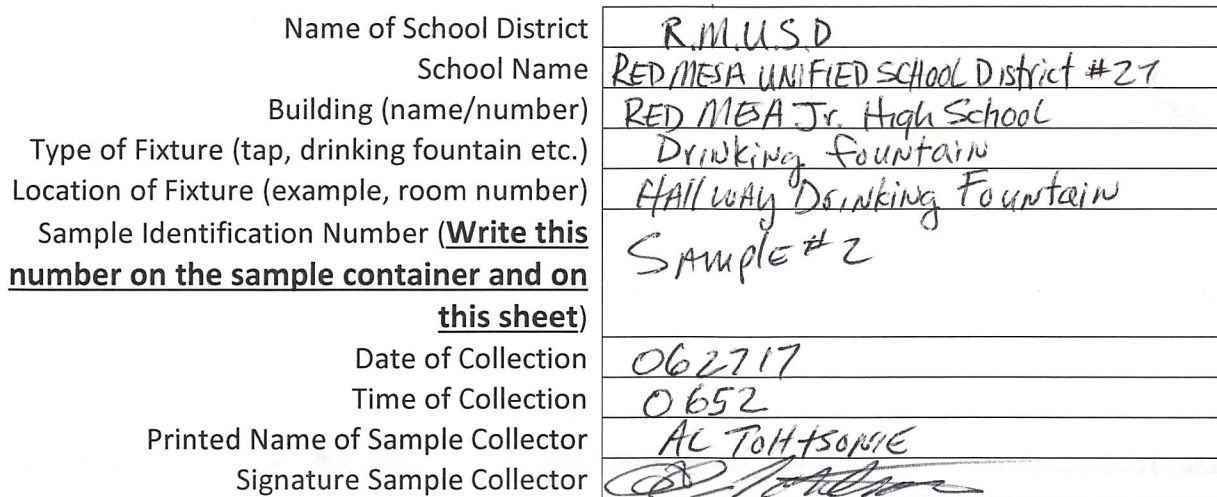 Name of School District R.M.U.S.D
School Name RED MESA UNIFIED SCHOOL District #27
Building (name/number) RED MESA Jr. High School
Type of Fixture (tap, drinking fountain etc.) Drinking fountain
Location of Fixture (example, room number) HAllWAy Drinking Fountain
Sample Identification Number (Write this
number on the sample container and on
this sheet)
SAmplE #2
Date of Collection 062717
Time of Collection 0652
Printed Name of Sample Collector AL TOHTSONIE
Signature Sample Collector